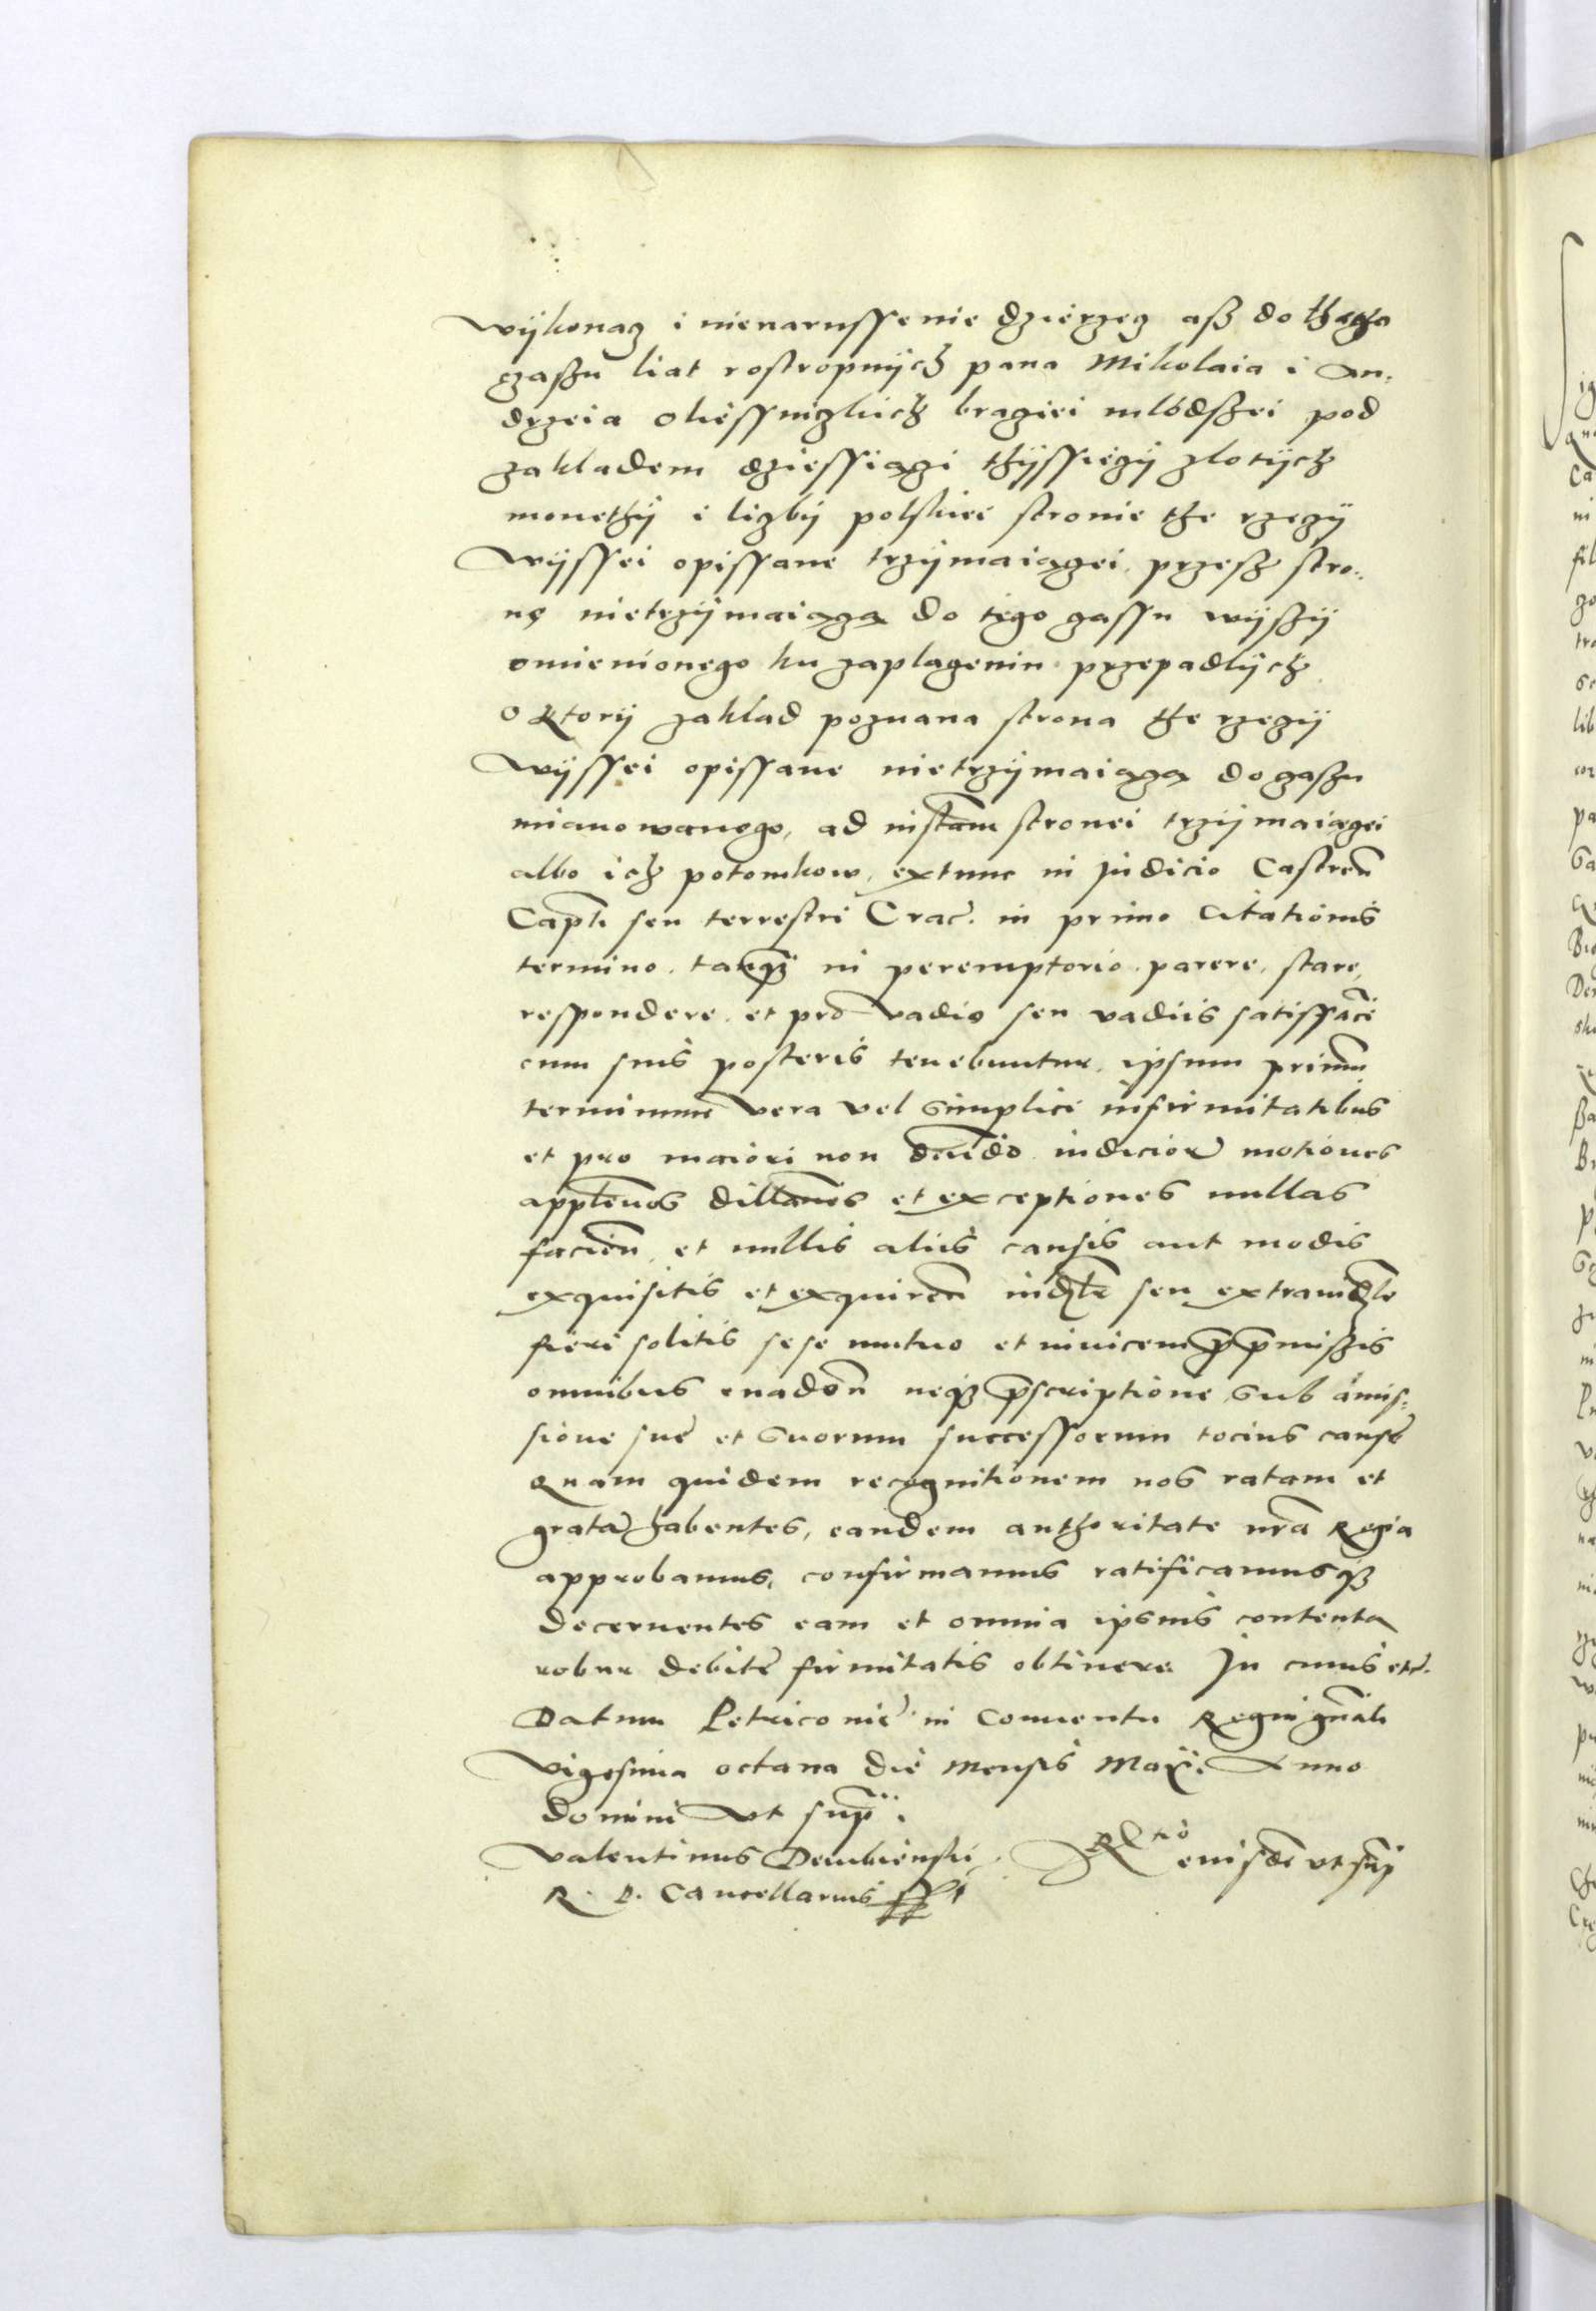 wÿkonacz i nienarussenie dzierzecz asz do thego
czaszu liat rostropnÿch pana Mikolaia i An,
drzeia Oliessniczkich braciei mlódszei pod
zakladem dziessiączi thÿssiéczÿ zlotÿch
monethÿ i liczbÿ polskiei stronie the rzeczÿ
wÿssei opissane trzÿmaiączei, przesz stro,,
nę nietrzÿmaiącza do tego czassu wÿszÿ
omienionego ku zaplaczeniu przepadlÿch
O Ktorÿ zaklad pozvana strona the rzeczÿ
wÿssei opissane nietrzÿmaiącza do czaszu
mianowanego, ad instam stronei trzÿmaiączei
albo ich potomkow, extunc in Judicio Castren
Capli seu terrestri Crac. in primo Citationis
termino, tanqz in peremptorio, parere, stare,
respondere, et pro vadio seu vadiis satisfacé
cum suis posteris tenebuntur, ipsum primum
terminum vera vel simplici infirmitatibus
et pro maiori non diudo iudicior motiones
applenos dillanes et exceptiones nullas
facien, et nullis aliis causis aut modis
exquisitis et exquiren iudlr seu extraiudlr
fieri solitis sese mutuo et inuicem p pmiszis
omnibus euaden neqz pscriptione sub amis,
sione sue et suorum successorum tocius cause
Quam quidem recognitionem nos ratam et
grata habentes, eandem authoritate nra Regia
approbamus, confirmamus ratificamusqz
decernentes eam et omnia ipsius contenta
robur debite firmitatis obtinere. In cuius etc.
Datum Petricovie in Conuentu Regni gnali
vigesima octaua die mensis Maÿ. Anno
domini vt sup.
Valentinus Dembienski
R. P. Cancellarius sst
Rtio eiusde vt sup